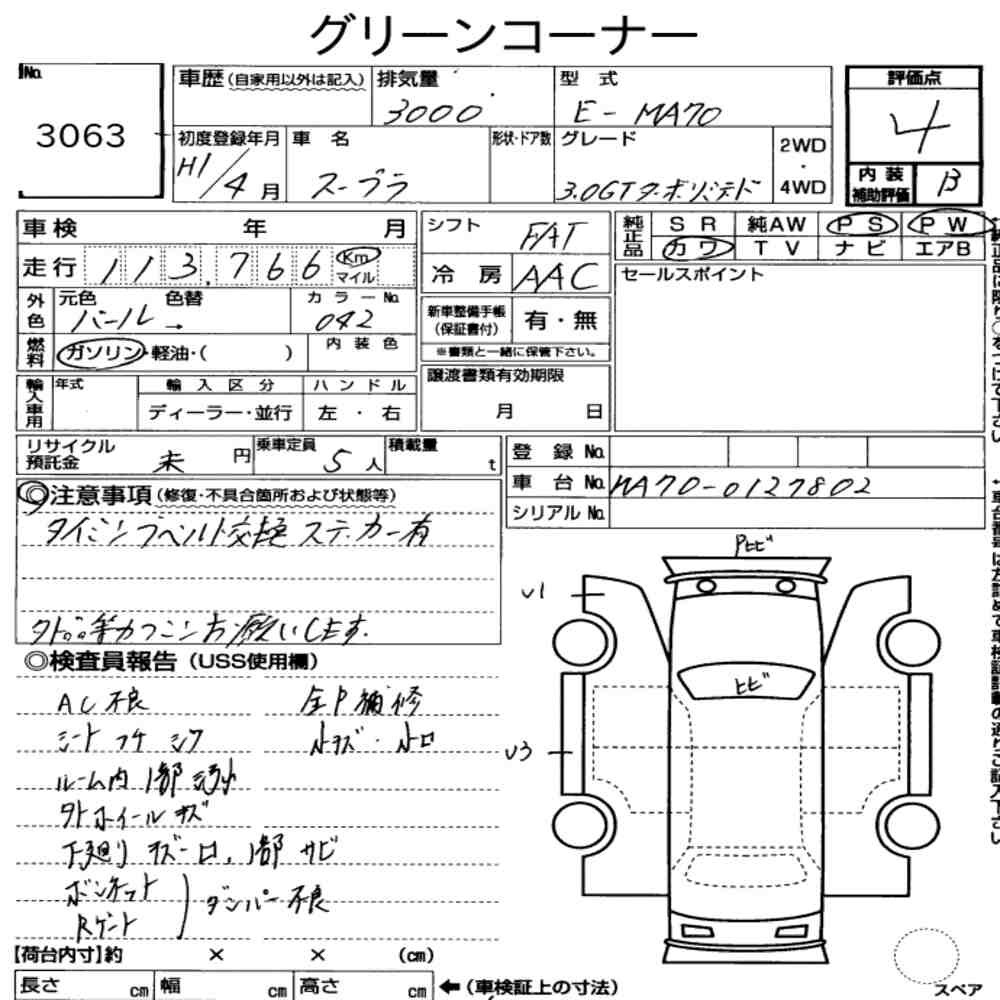 グリーンコーナー
No.
3063
車歴 (自家用以外は記入)
排気量
3000
型 式
E-MA70
評価点
4
初度登録年月
H1/4 月
車 名
スープラ
形状・ドア数
グレード
3.0GTターボリミテド
2WD
・
4WD
内装
補助評価
B
車検 年 月
シフト
FAT
純正品
SR 純AW PS PW
カワ TV ナビ エアB
走行 113,766 Km マイル
冷 房
AAC
セールスポイント
外色
元色
パール→
色替
カラーNo.
042
新車整備手帳
(保証書付)
有・無
※書類と一緒に保管下さい。
燃料
ガソリン・軽油・( )
内 装 色
譲渡書類有効期限
月 日
輸入車用
年式
輸 入 区 分
ディーラー・並行
ハ ン ド ル
左 ・ 右
リサイクル
預託金
未 円
乗車定員
5人
積載量
t
登 録 No.
車 台 No. MA70-0127802
シリアル No.
◎注意事項 (修復・不具合箇所および状態等)
タイミングベルト交換 ステッカー有
外品等カクニンお願いします。
◎検査員報告 (USS使用欄)
AC不良
シートコゲ シワ
ルーム内1部汚れ
外ホイールキズ
下廻りキズ凹,1部サビ
ボンネット
Rゲート
ダンパー不良
全P補修
小キズ・小凹
Pヒビ
U1
ヒビ
U3
【荷台内寸】約 × × (cm)
長さ cm 幅 cm 高さ cm
←(車検証上の寸法)
スペア